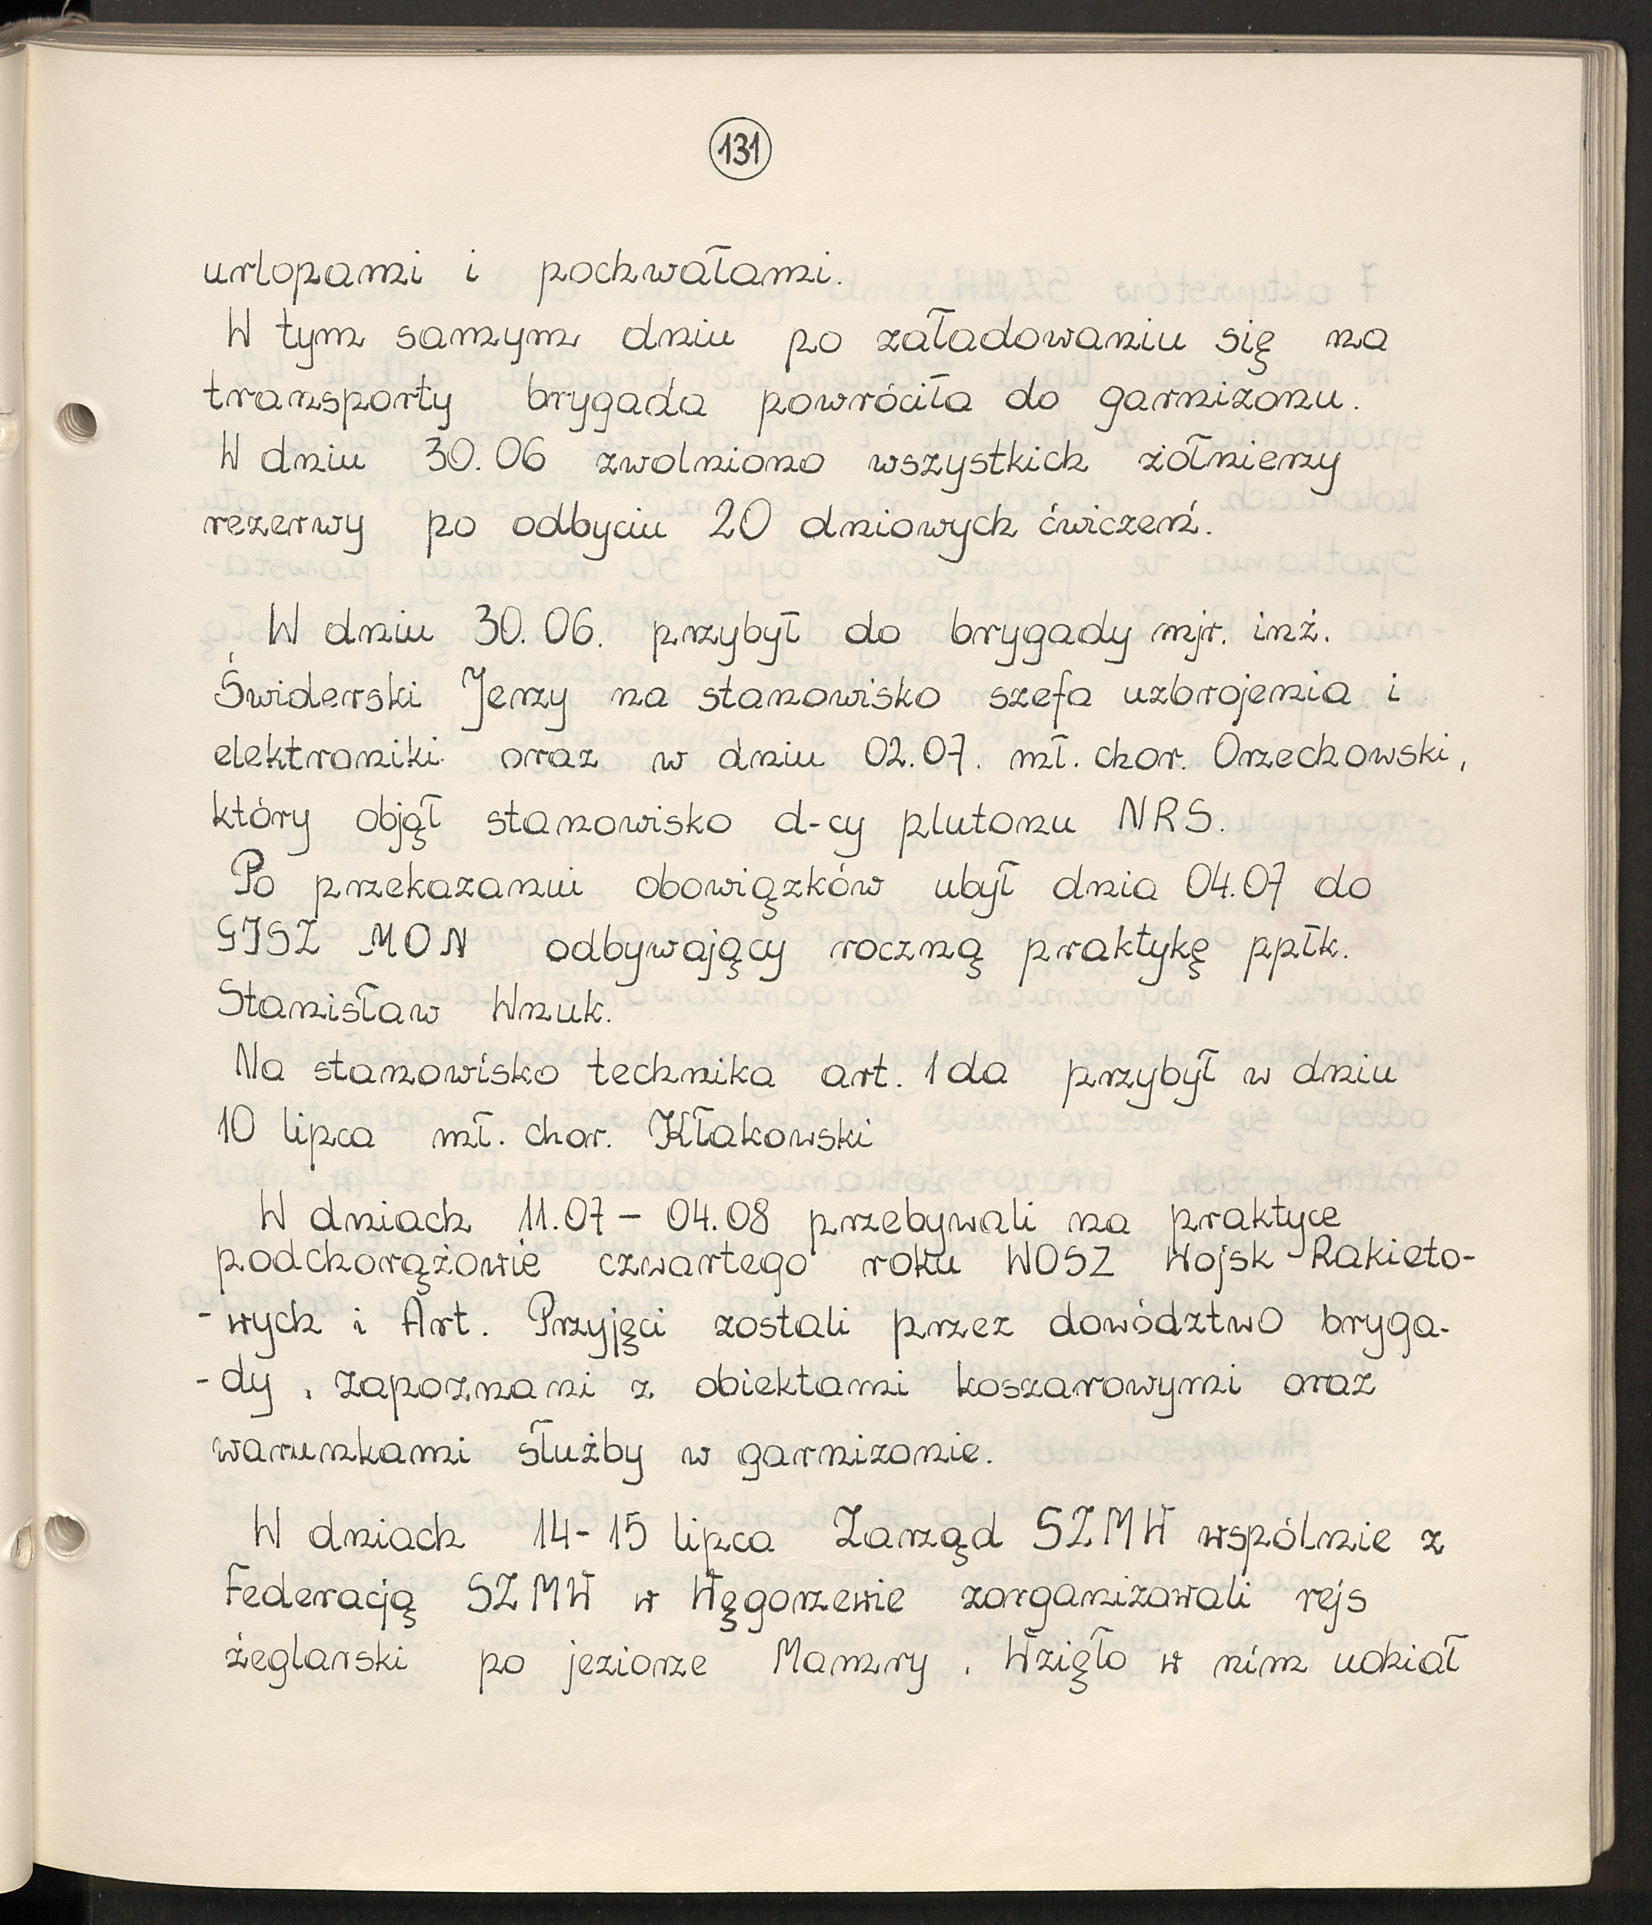 131
urlopami i pochwałami.
W tym samym dniu po załadowaniu się na
transporty brygada powróciła do garnizonu.
W dniu 30.06 zwolniono wszystkich żołnierzy
rezerwy po odbyciu 20 dniowych ćwiczeń.
W dniu 30.06. przybył do brygady mjr. inż.
Świderski Jerzy na stanowisko szefa uzbrojenia i
elektroniki oraz w dniu 02.07. mł. chor. Orzechowski,
który objął stanowisko d-cy plutonu NRS.
Po przekazaniu obowiązków ubył dnia 04.07 do
GISZ MON odbywający roczną praktykę ppłk.
Stanisław Wnuk.
Na stanowisko technika art. 1 da przybył w dniu
10 lipca mł. chor. Kłakowski
W dniach 11.07 – 04.08 przebywali na praktyce
podchorążowie czwartego roku WOSZ Wojsk Rakieto-
-wych i Art. Przyjęci zostali przez dowództwo bryga-
-dy, zapoznani z obiektami koszarowymi oraz
warunkami służby w garnizonie.
W dniach 14-15 lipca Zarząd SZMW wspólnie z
Federacją SZMW w Węgorzewie zorganizowali rejs
żeglarski po jeziorze Mamry. Wzięło w nim udział